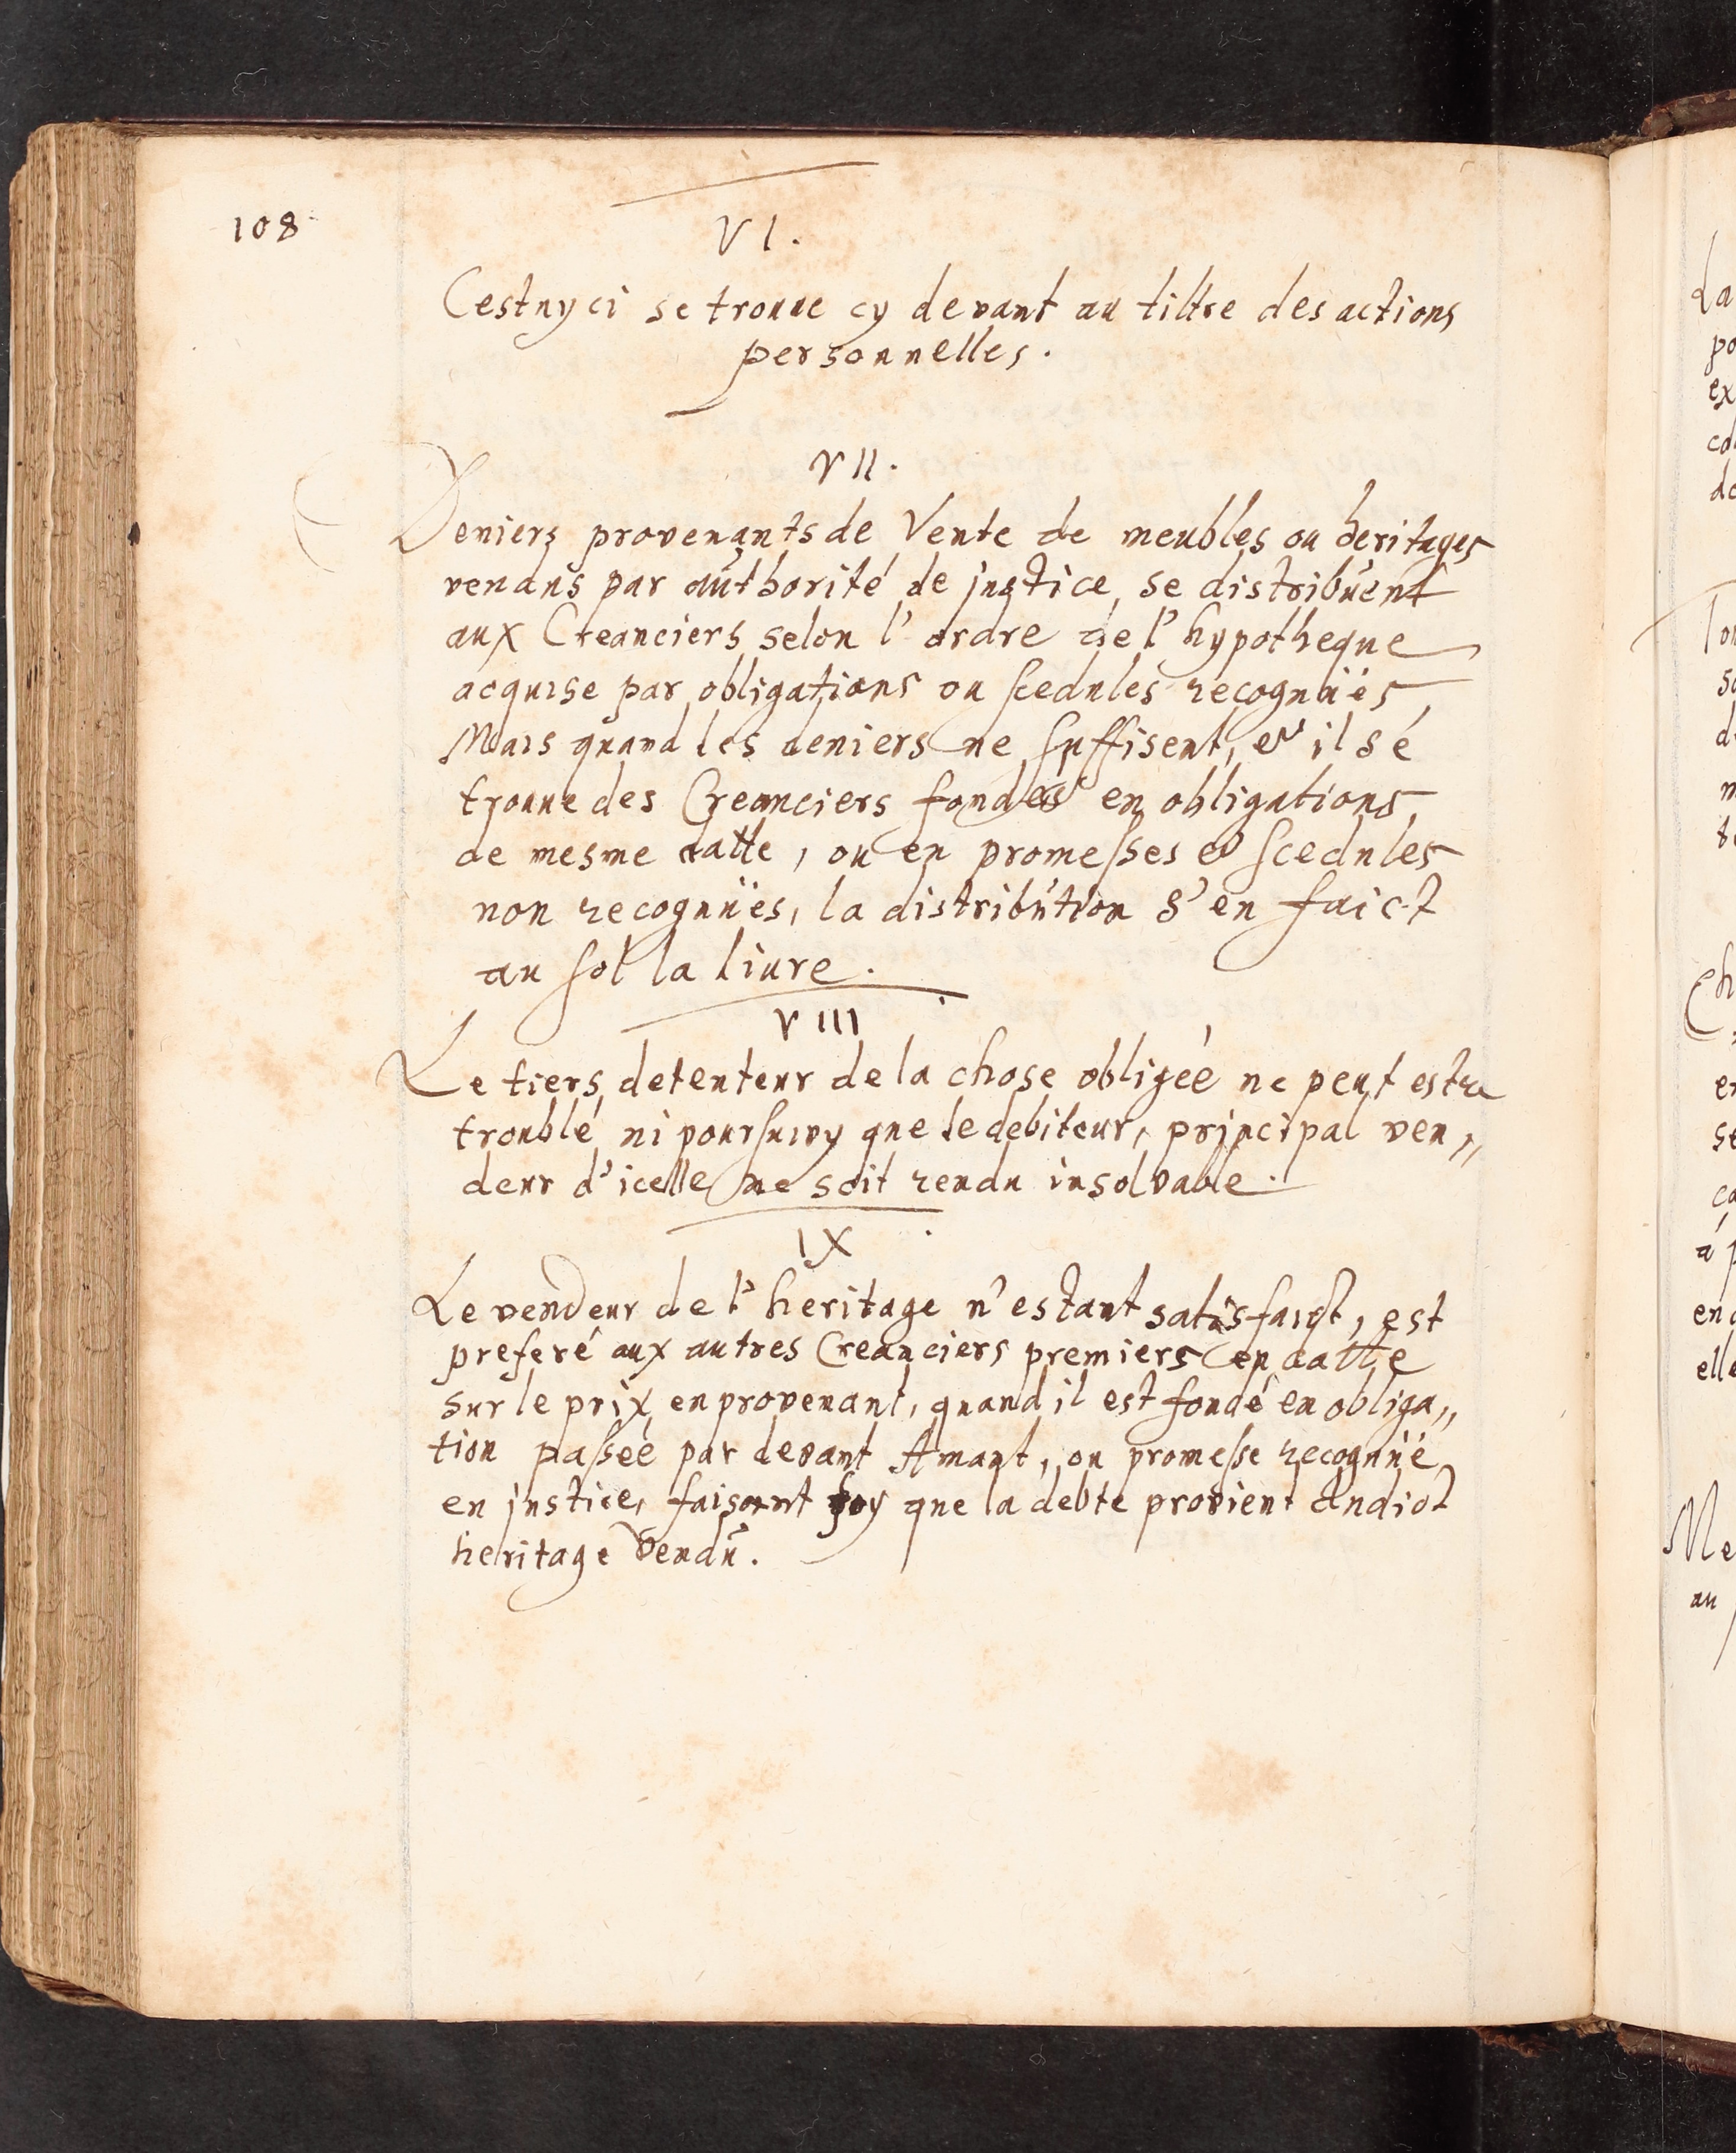 108
VI.
Cestuy ci se trouue cy devant au tiltre des actions
personnelles.
VII.
Deniers provenants de Vente de meubles ou heritages
vendus par aůthorité de justice, se distribuent
aux Creanciers selon l'ordre de l'hypotheque
acquise par obligations ou scedules recognües,
Mais quand les deniers ne suffisent, et il sé
trouue des Creanciers fondés en obligations
de mesme datte, ou en promeſses et scedules
non recognües, la distribution s'en faict
au sol la liure.
VIII
Le tiers detenteur de la chose obligée ne peut estre
troublé ni poursuivy que le debiteur, principal ven„
deur d'icelle ne soit rendu insolvable.
IX
Le vendeur de l'heritage n'estant satisfaict, est
preferé aux autres Creanciers premiers en datte
sur le prix en provenant, quand il est fondé en obliga„
tion paſsée par devant Amant, ou promeſse recognüe
en justice, faisant foy que la debte provient dudict
heritage Vendu.
La
po
ex
col
de
Tou
so
de
m
Ch
en
se
ca
á p
end
elle
Me
au